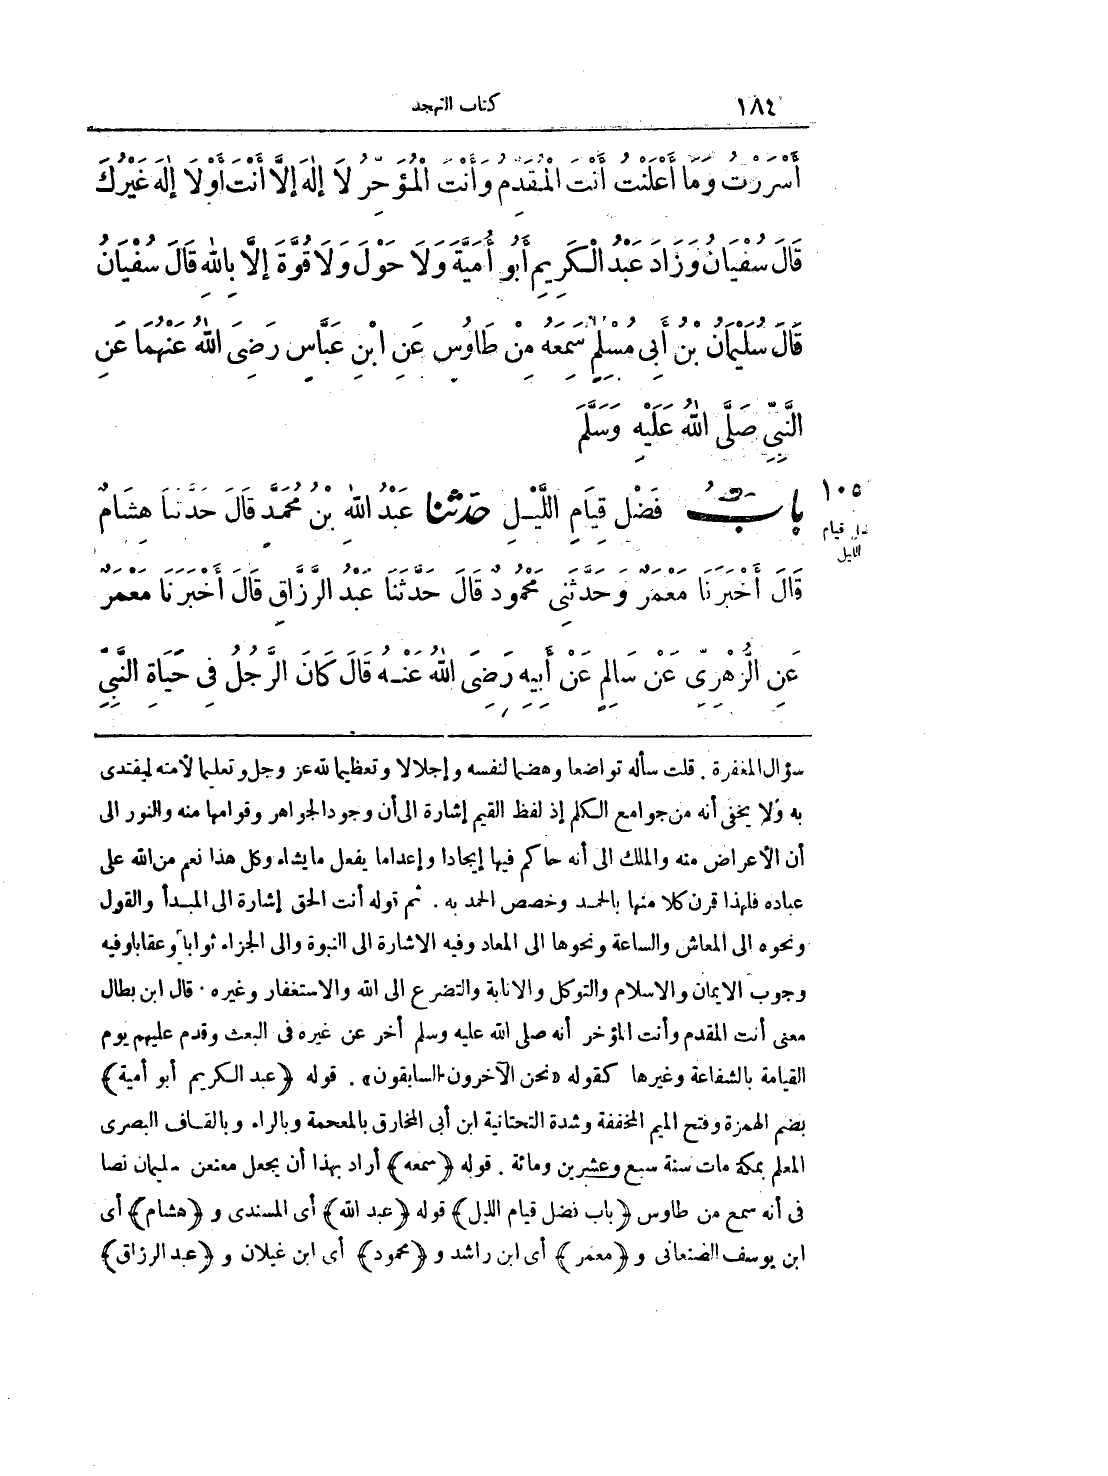 ١٨٤ كتاب التهجد
أَسْرَرْتُ وَمَا أَعْلَنْتُ أَنْتَ الْمُقَدِّمُ وَأَنْتَ الْمُؤَخِّرُ لَا إِلٰهَ إِلَّا أَنْتَ أَوْ لَا إِلٰهَ غَيْرُكَ
قَالَ سُفْيَانُ وَزَادَ عَبْدُ الْكَرِيمِ أَبُو أُمَيَّةَ وَلَا حَوْلَ وَلَا قُوَّةَ إِلَّا بِاللهِ قَالَ سُفْيَانُ
قَالَ سُلَيْمَانُ بْنُ أَبِى مُسْلِمٍ سَمِعَهُ مِنْ طَاوُسٍ عَنِ ابْنِ عَبَّاسٍ رَضِىَ اللهُ عَنْهُمَا عَنِ
النَّبِىِّ صَلَّى اللهُ عَلَيْهِ وَسَلَّمَ
١٠٥
قيام
الليل
بَابُ فَضْلِ قِيَامِ اللَّيْلِ حَدَّثَنَا عَبْدُ اللهِ بْنُ مُحَمَّدٍ قَالَ حَدَّثَنَا هِشَامٌ
قَالَ أَخْبَرَنَا مَعْمَرٌ وَحَدَّثَنِى مَحْمُودٌ قَالَ حَدَّثَنَا عَبْدُ الرَّزَّاقِ قَالَ أَخْبَرَنَا مَعْمَرٌ
عَنِ الزُّهْرِىِّ عَنْ سَالِمٍ عَنْ أَبِيهِ رَضِىَ اللهُ عَنْهُ قَالَ كَانَ الرَّجُلُ فِى حَيَاةِ النَّبِىِّ
سؤال المغفرة . قلت سأله تواضعا وهضما لنفسه وإجلالا وتعظيما لله عز وجل وتعليما لأمته ليقتدى
به ولا يخفى أنه من جوامع الكلم إذ لفظ القيم إشارة الى أن وجود الجواهر وقوامها منه والنور الى
أن الأعراض منه والملك الى أنه حاكم فيها إيجادا وإعداما يفعل ما يشاء وكل هذا نعم من الله على
عباده فلهذا قرن كلا منها بالحمد وخصص الحمد به . ثم قوله أنت الحق إشارة الى المبدأ والقول
ونحوه الى المعاش والساعة ونحوها الى المعاد وفيه الاشارة الى النبوة والى الجزاء ثوابا وعقابا وفيه
وجوب الايمان والاسلام والتوكل والانابة والتضرع الى الله والاستغفار وغيره . قال ابن بطال
معنى أنت المقدم وأنت المؤخر أنه صلى الله عليه وسلم أخر عن غيره فى البعث وقدم عليهم يوم
القيامة بالشفاعة وغيرها كقوله «نحن الآخرون السابقون» . قوله ﴿عبد الكريم أبو أمية﴾
بضم الهمزة وفتح الميم المخففة وشدة التحتانية ابن أبى المخارق بالمعجمة وبالراء وبالقاف البصرى
المعلم بمكة مات سنة سبع وعشرين ومائة . قوله ﴿سمعه﴾ أراد بهذا أن يجعل معنعن سليمان نصا
فى أنه سمع من طاوس ﴿باب فضل قيام الليل﴾ قوله ﴿عبد الله﴾ أى المسندى و ﴿هشام﴾ أى
ابن يوسف الصنعانى و ﴿معمر﴾ أى ابن راشد و ﴿محمود﴾ أى ابن غيلان و ﴿عبد الرزاق﴾